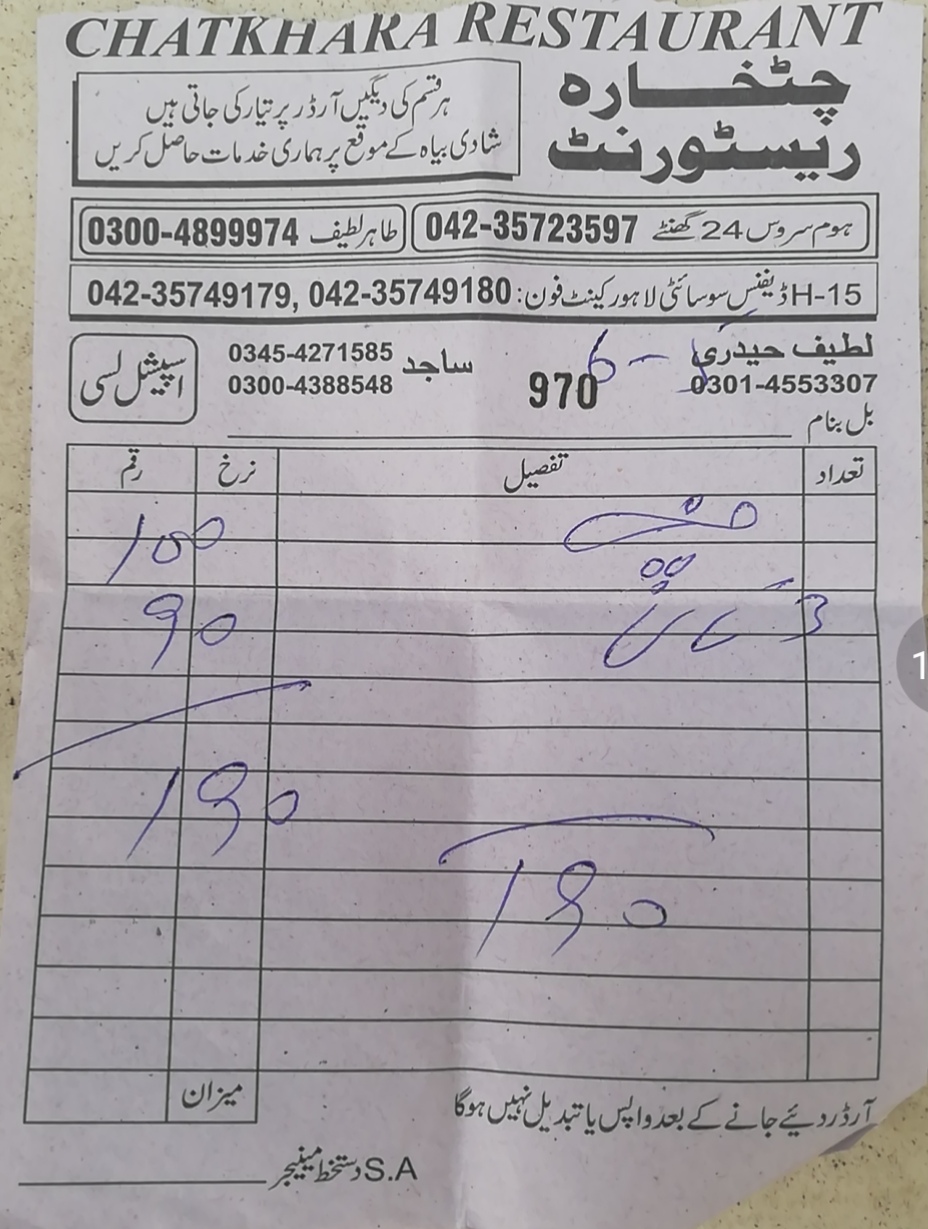 CHATKHARA RESTAURANT
چٹخارہ
ریسٹورنٹ
ہر قسم کی دیگیں آرڈر پر تیار کی جاتی ہیں
شادی بیاہ کے موقع پر ہماری خدمات حاصل کریں
ہوم سروس 24 گھنٹے 042-35723597
طاہر لطیف 0300-4899974
H-15 ڈیفنس سوسائٹی لاہور کینٹ فون: 042-35749179, 042-35749180
لطیف حیدری
0301-4553307
970
ساجد 0345-4271585
0300-4388548
اسپیشل لسی
بل بنام
تعداد تفصیل نرخ رقم
100
3 90
190
190
میزان
آرڈر دیئے جانے کے بعد واپس یا تبدیل نہیں ہوگا
S.A دستخط مینیجر
1